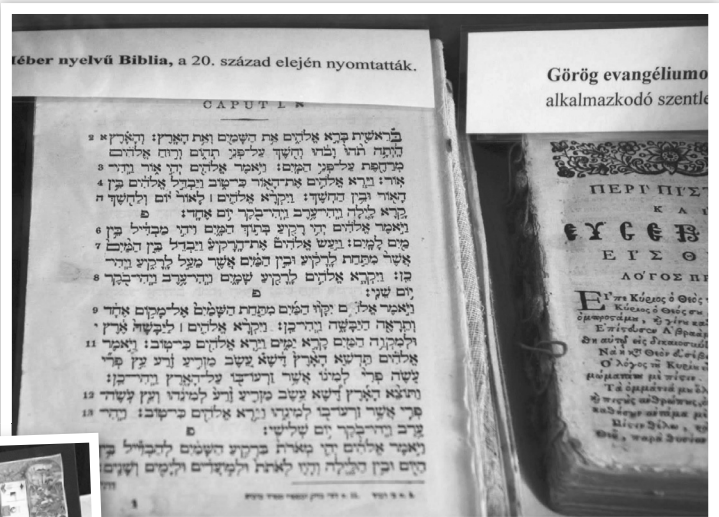 Héber nyelvű Biblia, a 20. század elején nyomtatták.
CAPUT I.
2 א בראשית ברא אלהים את השמים ואת הארץ: והארץ
היתה תהו ובהו וחשך על־פני תהום ורוח אלהים
3 מרחפת על־פני המים: ויאמר אלהים יהי אור ויהי־
4 אור: וירא אלהים את־האור כי־טוב ויבדל אלהים בין
ה האור ובין החשך: ויקרא אלהים ׀ לאור יום ולחשך
קרא לילה ויהי־ערב ויהי־בקר יום אחד: פ
6 ויאמר אלהים יהי רקיע בתוך המים ויהי מבדיל בין
7 מים למים: ויעש אלהים את־הרקיע ויבדל בין המים
אשר מתחת לרקיע ובין המים אשר מעל לרקיע ויהי־
8 כן: ויקרא אלהים לרקיע שמים ויהי־ערב ויהי־בקר
יום שני: פ
9 ויאמר אלהים יקוו המים מתחת השמים אל־מקום אחד
י ותראה היבשה ויהי־כן: ויקרא אלהים ׀ ליבשה ארץ
11 ולמקוה המים קרא ימים וירא אלהים כי־טוב: ויאמר
אלהים תדשא הארץ דשא עשב מזריע זרע עץ פרי
עשה פרי למינו אשר זרעו־בו על־הארץ ויהי־כן:
12 ותוצא הארץ דשא עשב מזריע זרע למינהו ועץ עשה־
13 פרי אשר זרעו־בו למינהו וירא אלהים כי־טוב: ויהי־
ערב ויהי־בקר יום שלישי: פ
ויאמר אלהים יהי מארת ברקיע השמים להבדיל בין
היום ובין הלילה והיו לאתת ולמועדים ולימים ושנים:
Görög evangéliumo
alkalmazkodó szentle
ΠΕΡΙ ΠΙΣΤ
ΚΑ
ΕΥΣΕΒ
ΕΙΣ Θ
ΛΟΓΟΣ ΠΡ
Εἶπε Κύριος ὁ Θεός